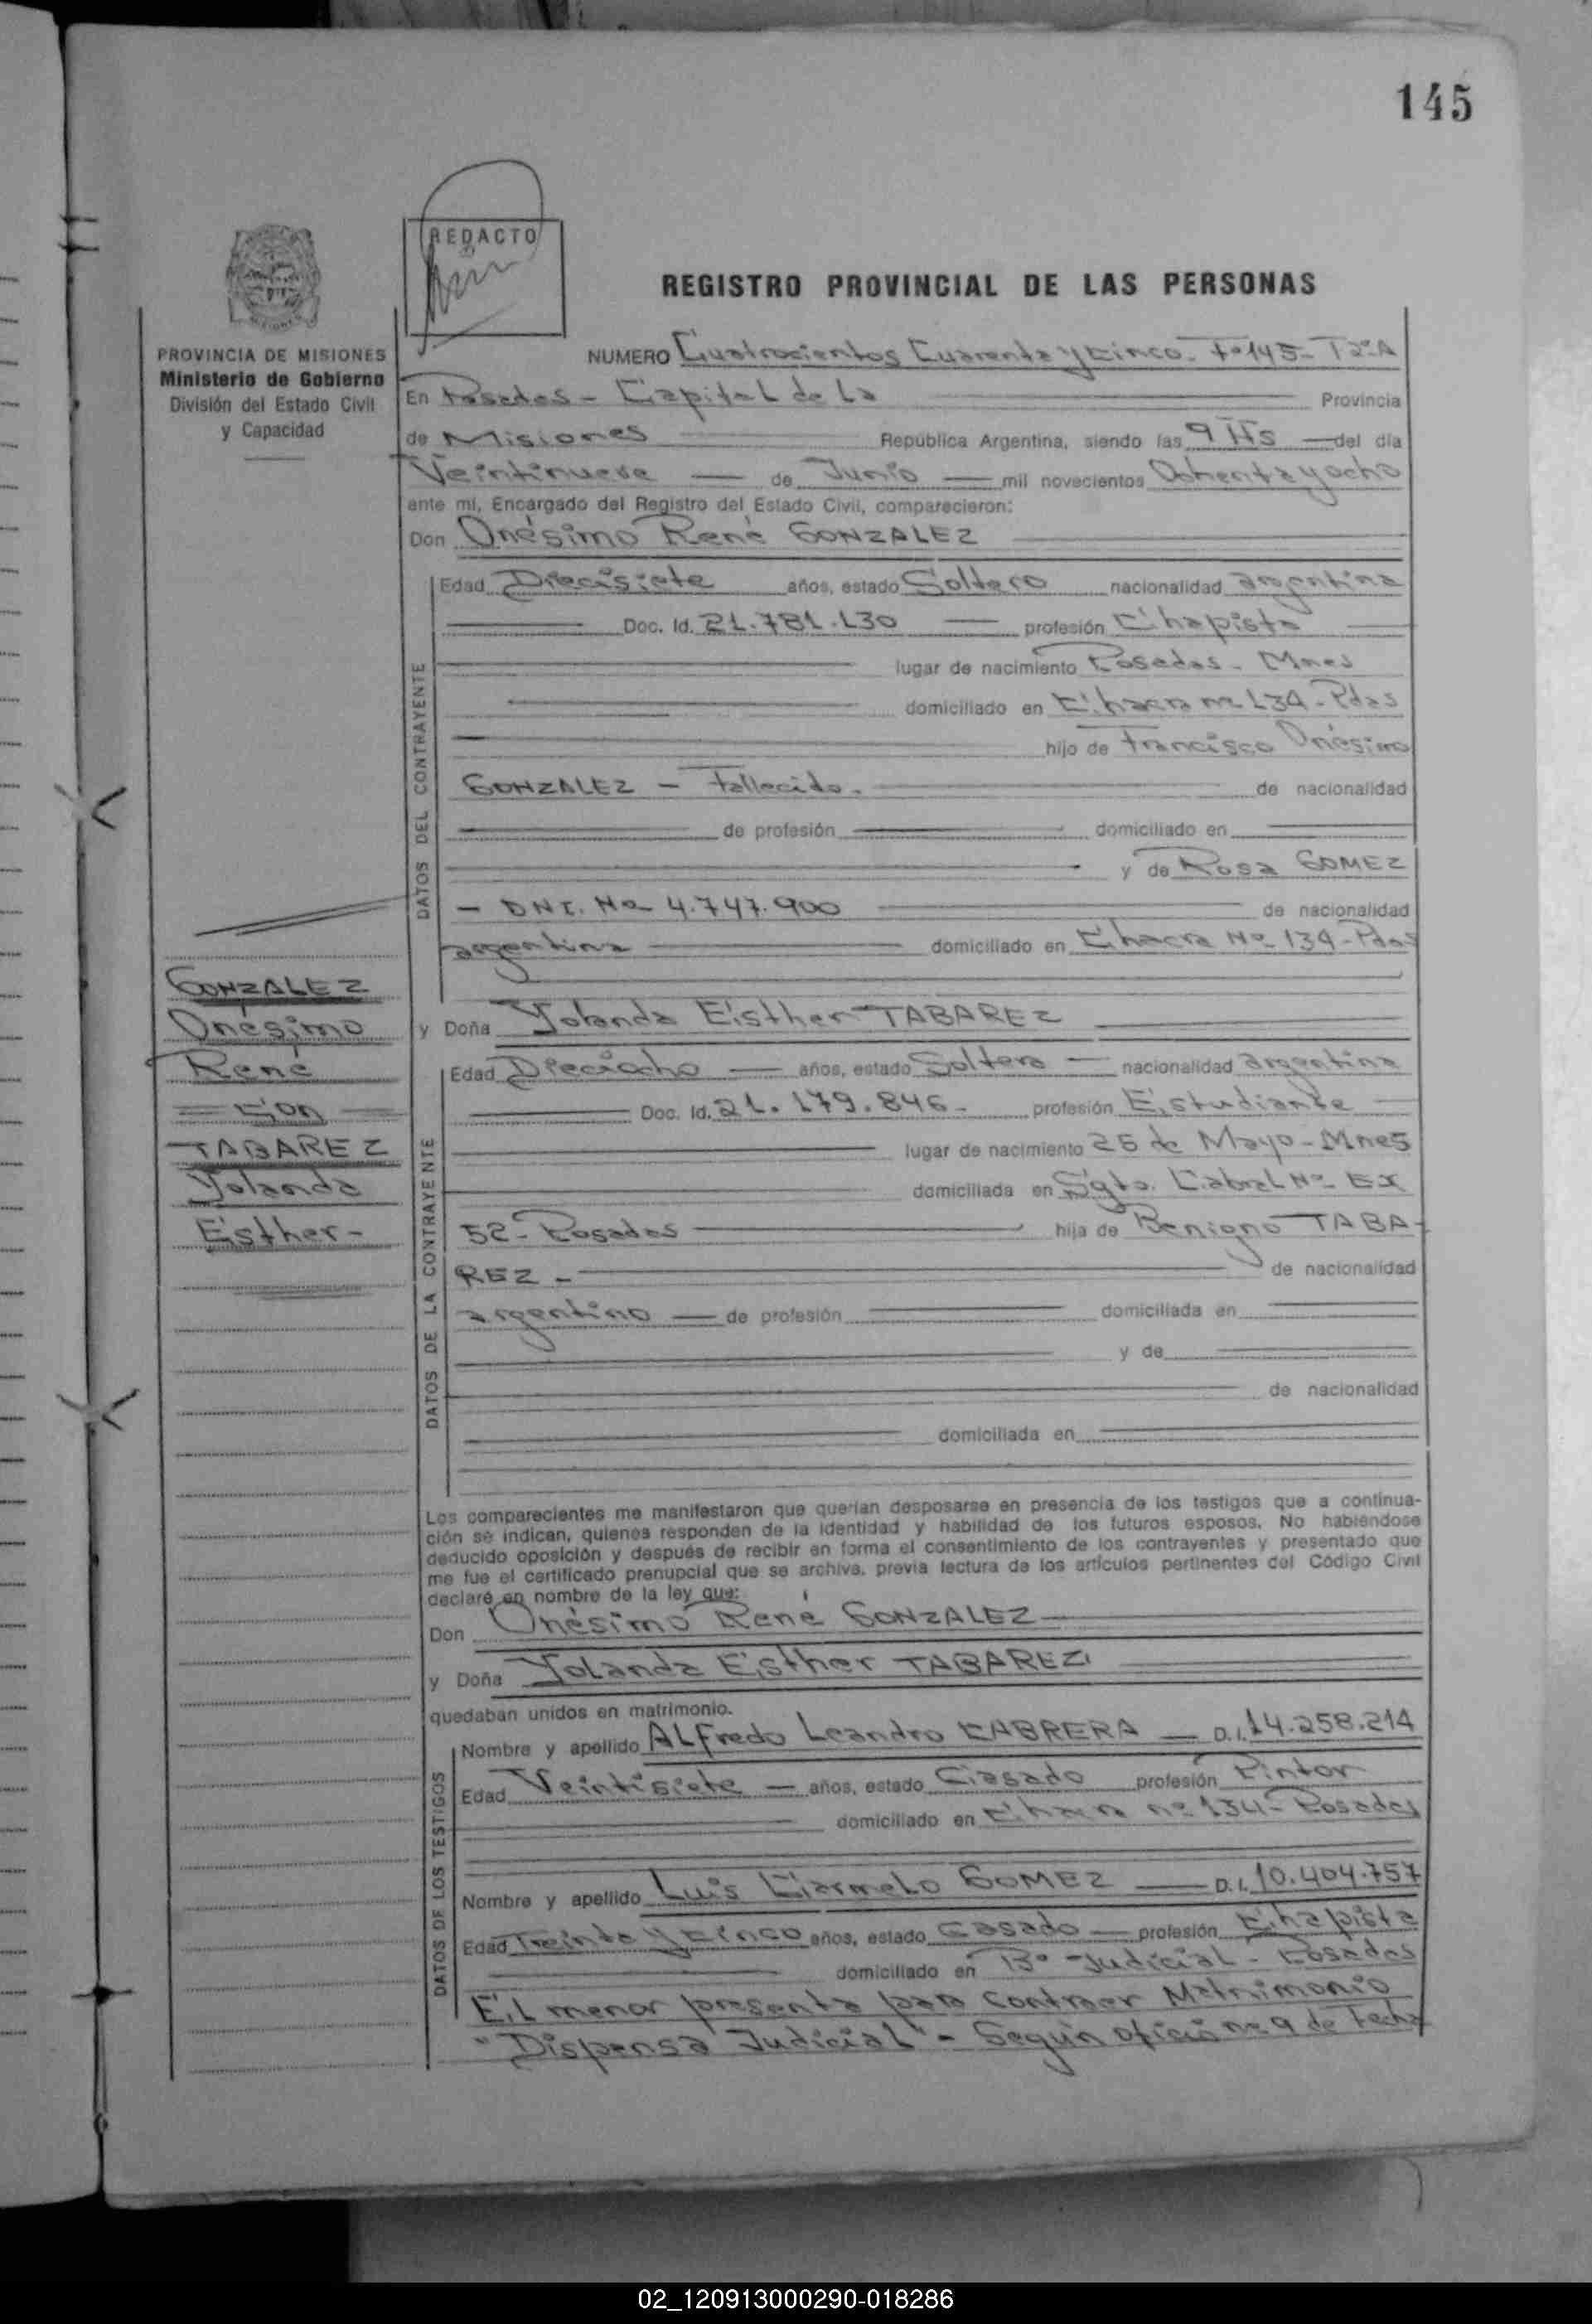 145
REDACTO
REGISTRO PROVINCIAL DE LAS PERSONAS
PROVINCIA DE MISIONES
Ministerio de Gobierno
División del Estado Civil
y Capacidad
NUMERO Cuatrocientos Cuarenta y cinco. Fº 145- Tº 2º A
En Posadas - Capital de la Provincia
de Misiones República Argentina, siendo las 9 Hs del día
Veintinueve de Junio mil novecientos Ochenta y ocho
ante mí, Encargado del Registro del Estado Civil, comparecieron:
Don Onésimo René GONZALEZ
DATOS DEL CONTRAYENTE
Edad Diecisiete años, estado Soltero nacionalidad argentina
Doc. Id. 21.781.130 profesión Chapista
lugar de nacimiento Posadas - Mnes
domiciliado en Chacra nº 134 - Pdas
hijo de Francisco Onésimo
GONZALEZ - Fallecido. de nacionalidad
de profesión domiciliado en
y de Rosa GOMEZ
- DNI. Nº 4.747.900 de nacionalidad
argentina domiciliado en Chacra Nº 134 - Pdas
GONZALEZ
Onésimo
René
= Con =
TABAREZ
Yolanda
Esther -
y Doña Yolanda Esther TABAREZ
DATOS DE LA CONTRAYENTE
Edad Dieciocho años, estado Soltera nacionalidad argentina
Doc. Id. 21.179.846 - profesión Estudiante
lugar de nacimiento 25 de Mayo - Mnes
domiciliada en Sgto. Cabral Nº EX
52 - Posadas hija de Benigno TABA-
REZ - de nacionalidad
argentino de profesión domiciliada en
y de
de nacionalidad
domiciliada en
Los comparecientes me manifestaron que querían desposarse en presencia de los testigos que a continua-
ción se indican, quienes responden de la identidad y habilidad de los futuros esposos. No habiéndose
deducido oposición y después de recibir en forma el consentimiento de los contrayentes y presentado que
me fue el certificado prenupcial que se archiva, previa lectura de los artículos pertinentes del Código Civil
declaré en nombre de la ley que:
Don Onésimo René GONZALEZ
y Doña Yolanda Esther TABAREZ
quedaban unidos en matrimonio.
DATOS DE LOS TESTIGOS
Nombre y apellido Alfredo Leandro CABRERA D.I. 14.258.214
Edad Veintisiete años, estado Casado profesión Pintor
domiciliado en Chacra nº 134 - Posadas
Nombre y apellido Luis Carmelo GOMEZ D.I. 10.404.757
Edad Treinta y Cinco años, estado Casado profesión Chapista
domiciliado en Bº Judicial - Posadas
El menor presenta para contraer Matrimonio
"Dispensa Judicial" - Según oficio nº 9 de Fecha
02_120913000290-018286